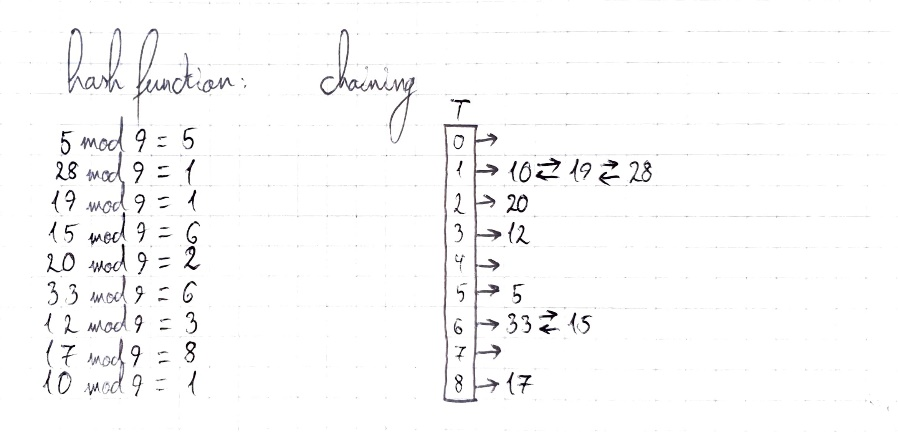 hash function: chaining
T
5 mod 9 = 5
28 mod 9 = 1
19 mod 9 = 1
15 mod 9 = 6
20 mod 9 = 2
33 mod 9 = 6
12 mod 9 = 3
17 mod 9 = 8
10 mod 9 = 1
0 →
1 → 10 ⇄ 19 ⇄ 28
2 → 20
3 → 12
4 →
5 → 5
6 → 33 ⇄ 15
7 →
8 → 17